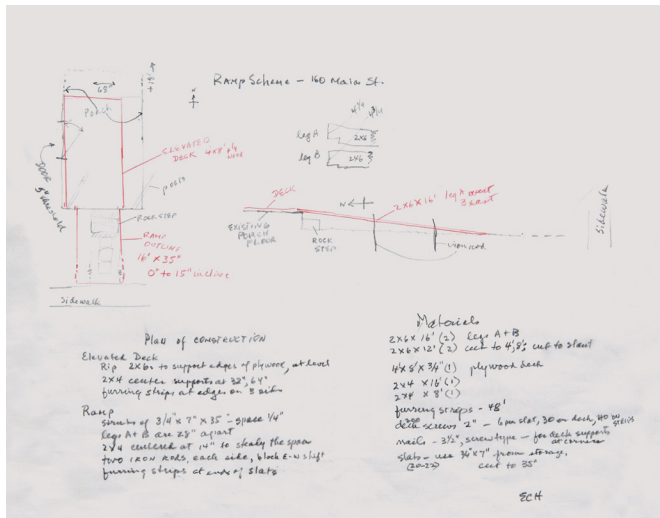 Ramp Scheme - 160 Main St.
68"
Porch
ELEVATED
DECK 4x8'x3/4
DOOR
5" threshold
posts
ROCK STEP
RAMP
OUTLINE
16' x 35"
0" to 15" incline
Sidewalk
leg A 2x6
leg B 2x6
DECK
N
2x6x16' leg A
EXISTING
PORCH
FLOOR
ROCK
STEP
iron rod
Sidewalk
Plan of Construction
Elevated Deck
Rip 2x6s to support edges of plywood, at level
2x4 center supports at 32", 64"
furring strips at edges on 3 sides
Ramp
struts of 3/4" x 7" x 35" - space 1/4"
legs A+B are 28" apart
2x4 centered at 14" to steady the span
two IRON RODS, each side, block E-W shift
furring strips at ends of slats
Materials
2x6x16' (2) legs A+B
2x6x12' (2) cut to 4', 8'; cut to slant
4'x8'x3/4" (1) plywood deck
2x4 x16' (1)
2x4 x 8' (1)
furring strips - 48'
deck screws 2" - 6 per slat, 30 on deck, 40 on strips
nails - 3 1/2", screw type - for deck supports at corners
slats - use 3/4"x7" from storage,
(20-22) cut to 35"
ECH